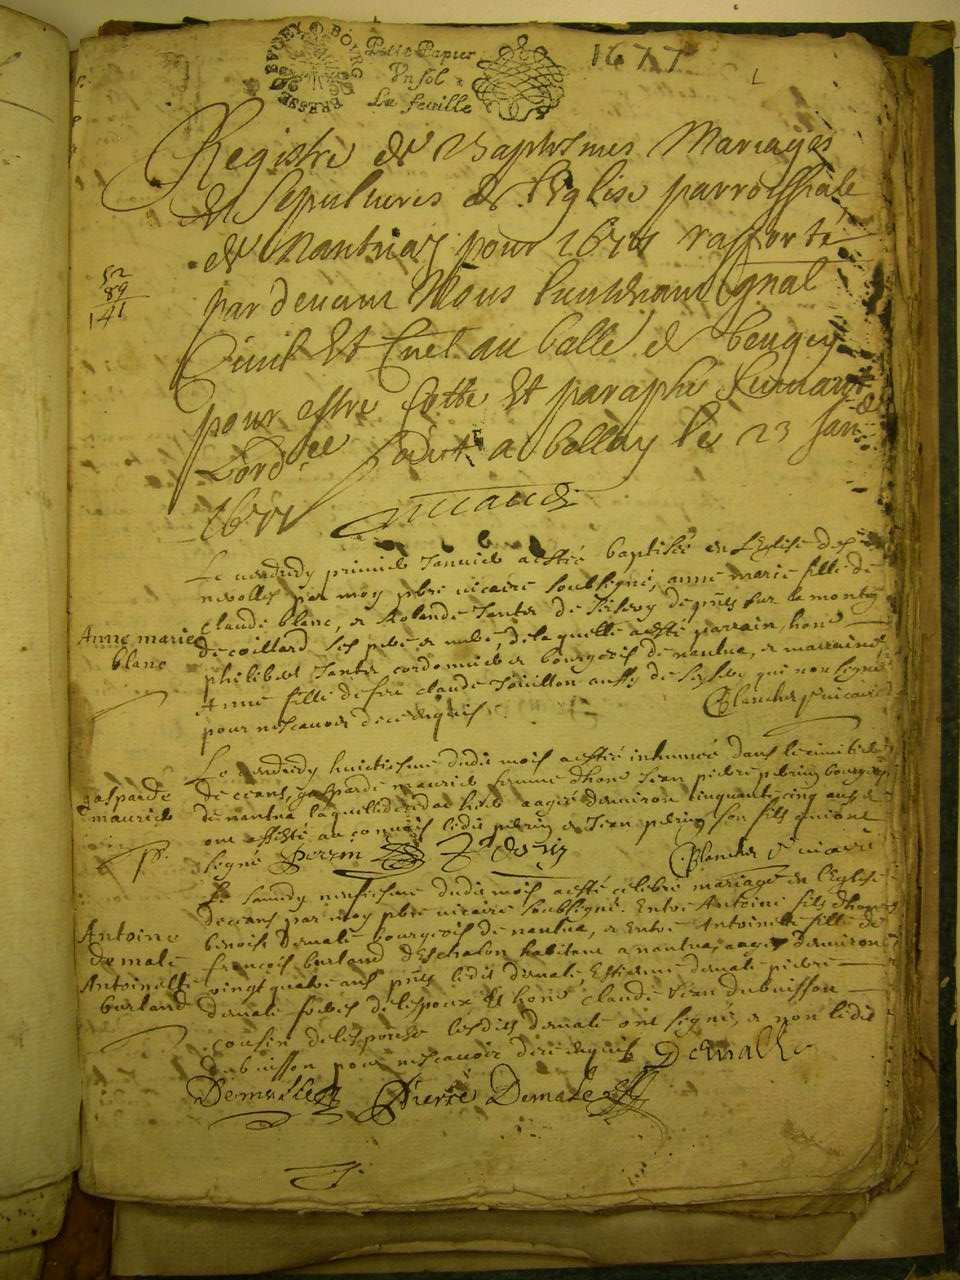 BUGEY BOURG BRESSE
Petit Papier
Un sol
La feuille
1677
Registre de Baptesmes Mariages
et Sepultures de l'Eglise parroissiale
de Nantuaz pour 1677 rapporté
pardevant Nous lieutenant gnal
Civil Et Cruel au balle de beugey
pour estre Cotté Et paraphé suivant
Lord.ce faict a belley le 23 Jan
1677
52
89
141
Le vendredy premier Janvier a esté baptisée en l'Eglise de
par moy pbre vicaire soubsigné, anne marie fille de
claude blanc, et Rolande Tantet de
de coillard ses pere et mere, de laquelle a esté parrain, hone
philibert Tantet cordonnier et bourgeois de nantua, et marraine
Anne fille de feu claude Jouillon aussy de qui non signé
pour ne scavoir de ce enquis
Blanchet p vicaire
Anne marie
blanc
Le vendredy huictiesme dudit mois a esté inhumée dans le cimitiere
de ceans, gasparde mauried femme d'hone Jean pierre perrin bourgeois
de nantua laquelle deceda hier aagée d'environ cinquante cinq ans et
ont assisté au convois ledit perrin et Jean perrin son fils qui ont
signé Perrin
Blanchet p vicaire
gasparde
mauried
Le samedy neufiesme dudit mois a esté celebré mariage en l'Eglise
de ceans par moy pbre vicaire soubsigné. Entre Antoine fils d'hone
benoist demale bourgeois de nantua, et Entre Antoinette fille de
francois burland d'Eschalon habitant a nantua, aagés d'environ
vingt quatre ans pnts ledit demale Estienne demale pierre
demale freres de l'espoux Et hone claude Jean dubuisson
cousin de l'espouse lesdits demale ont signé, et non ledit
dubuisson pour ne scavoir de ce enquis Demalle
Demalle Pierre Demale
Antoine
demale
Antoinette
burland